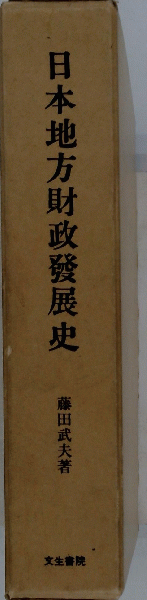 日本地方財政發展史
藤田武夫著
文生書院